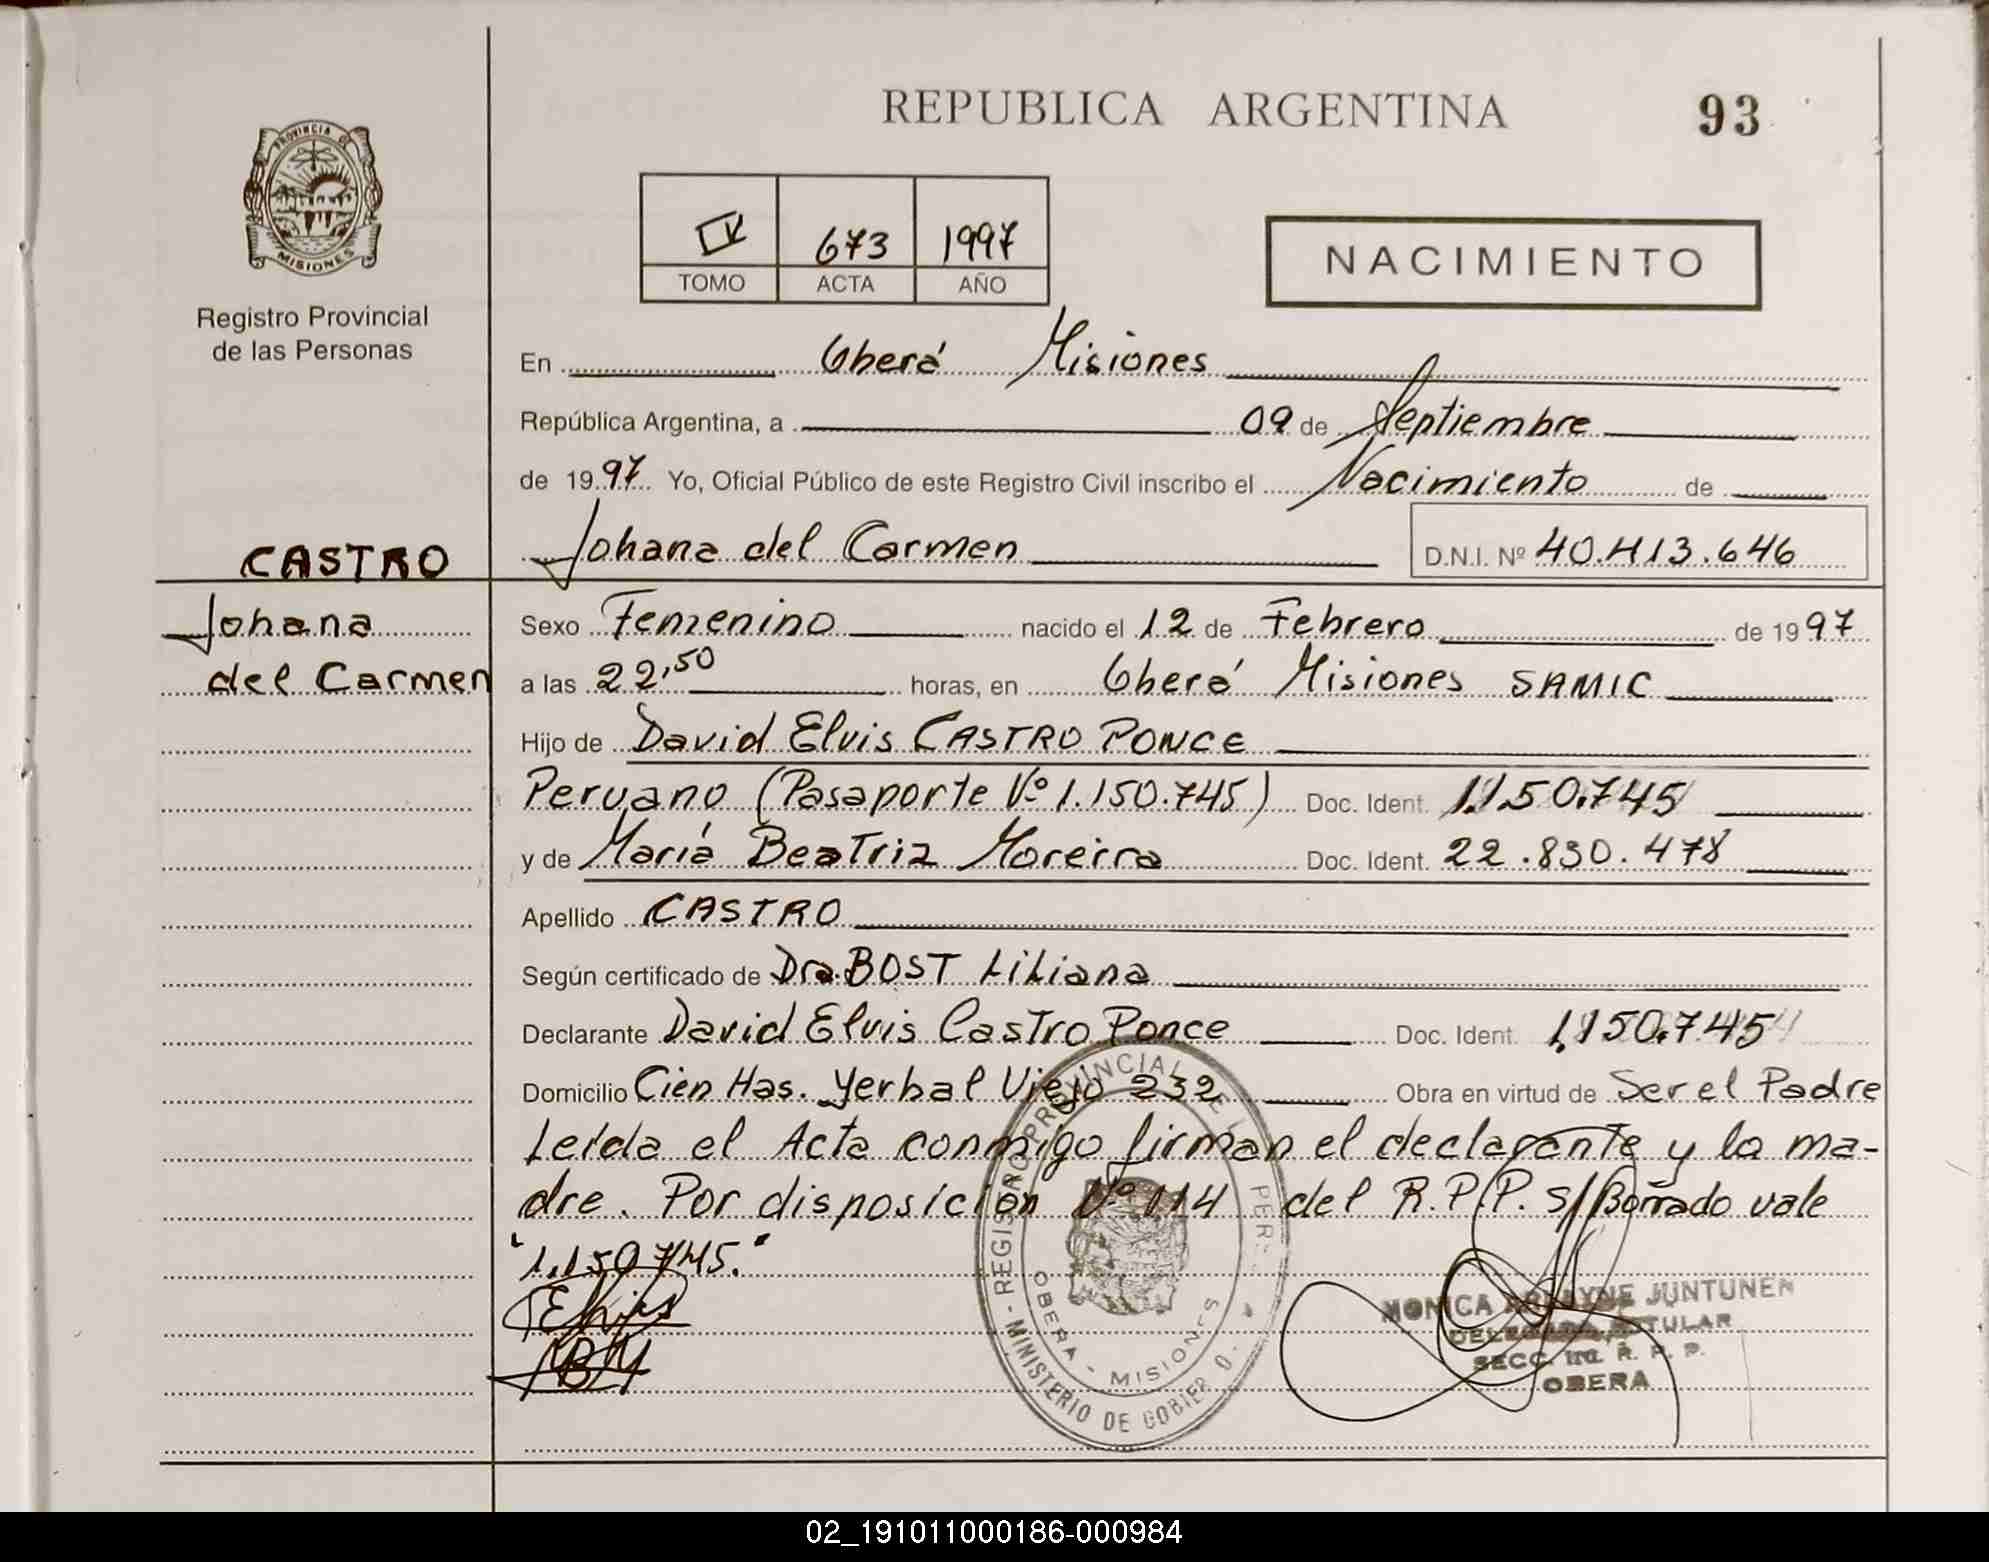 REPUBLICA ARGENTINA
93
PROVINCIA DE
MISIONES
Registro Provincial
de las Personas
673 1997
TOMO ACTA AÑO
NACIMIENTO
En Oberá Misiones
República Argentina, a 09 de Septiembre
de 1997 Yo, Oficial Público de este Registro Civil inscribo el Nacimiento de
CASTRO
Johana del Carmen D.N.I. Nº 40.413.646
Johana
del Carmen
Sexo Femenino nacido el 12 de Febrero de 1997
a las 22,50 horas, en Oberá Misiones SAMIC
Hijo de David Elvis CASTRO PONCE
Peruano (Pasaporte Nº 1.150.745) Doc. Ident. 1.150.745
y de María Beatriz Moreira Doc. Ident. 22.830.478
Apellido CASTRO
Según certificado de Dra. BOST Liliana
Declarante David Elvis Castro Ponce Doc. Ident. 1.150.745
Domicilio Cien Has. Yerbal Viejo 232 Obra en virtud de Ser el Padre
Leída el Acta conmigo firman el declarante y la ma-
dre. Por disposición Nº 114 del R.P.P. S/Borrado vale
"1.150.745."
REGISTRO PROVINCIAL DE PERS
MINISTERIO DE GOBIERNO
OBERA - MISIONES
MONICA JUNTUNEN
DELEGADA TITULAR
SECC. R. P. P.
OBERA
02_191011000186-000984